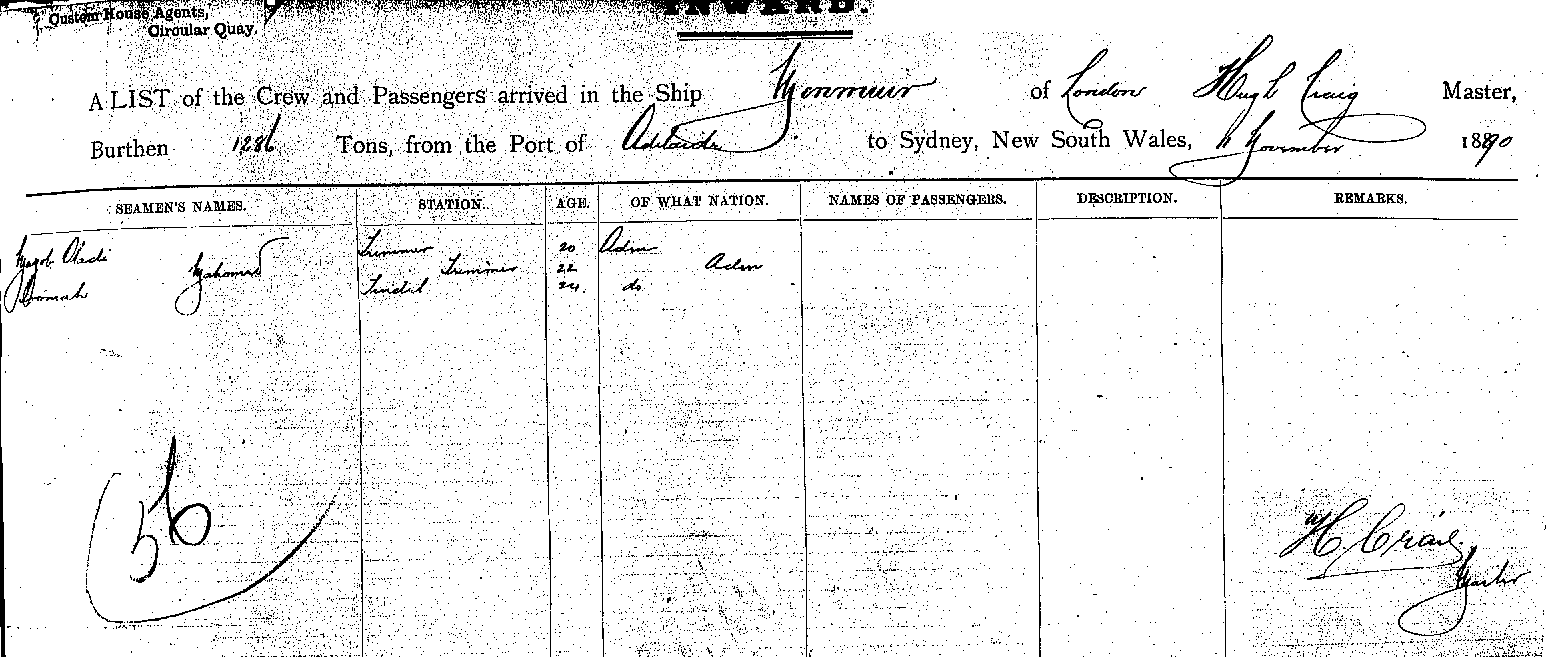 Custom House Agents,
Circular Quay,
INWARD.
A LIST of the Crew and Passengers arrived in the Ship Monmuir of London Hugh Craig Master,
Burthen 1286 Tons, from the Port of Adelaide to Sydney, New South Wales, 11 November 1890
SEAMEN'S NAMES. STATION. AGE. OF WHAT NATION. NAMES OF PASSENGERS. DESCRIPTION. REMARKS.
Trimmer 20 Aden
Mahomed Trimmer 22 Aden
Tindal 24. do
56
H Craig
Master